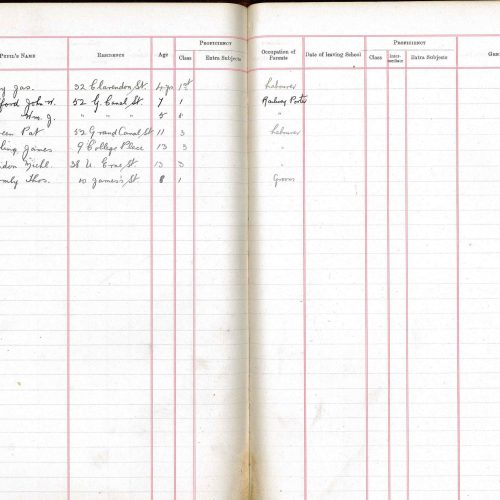 PUPIL'S NAME RESIDENCE AGE PROFICIENCY Class Extra Subjects Occupation of Parents Date of leaving School PROFICIENCY Class Inter-mediate Extra Subjects
Jas. 32 Clarendon St. 4 yrs 1st Labourer
ford John W. 52 G. Canal St. 7 1 Railway Porter
Wm. J. " " " 5 "
een Pat 52 Grand Canal St. 11 3 Labourer
ling James 9 College Place 13 3 "
don Michl. 38 U. Erne St. 13 3 "
Thos. 10 James's St. 8 1 Groom